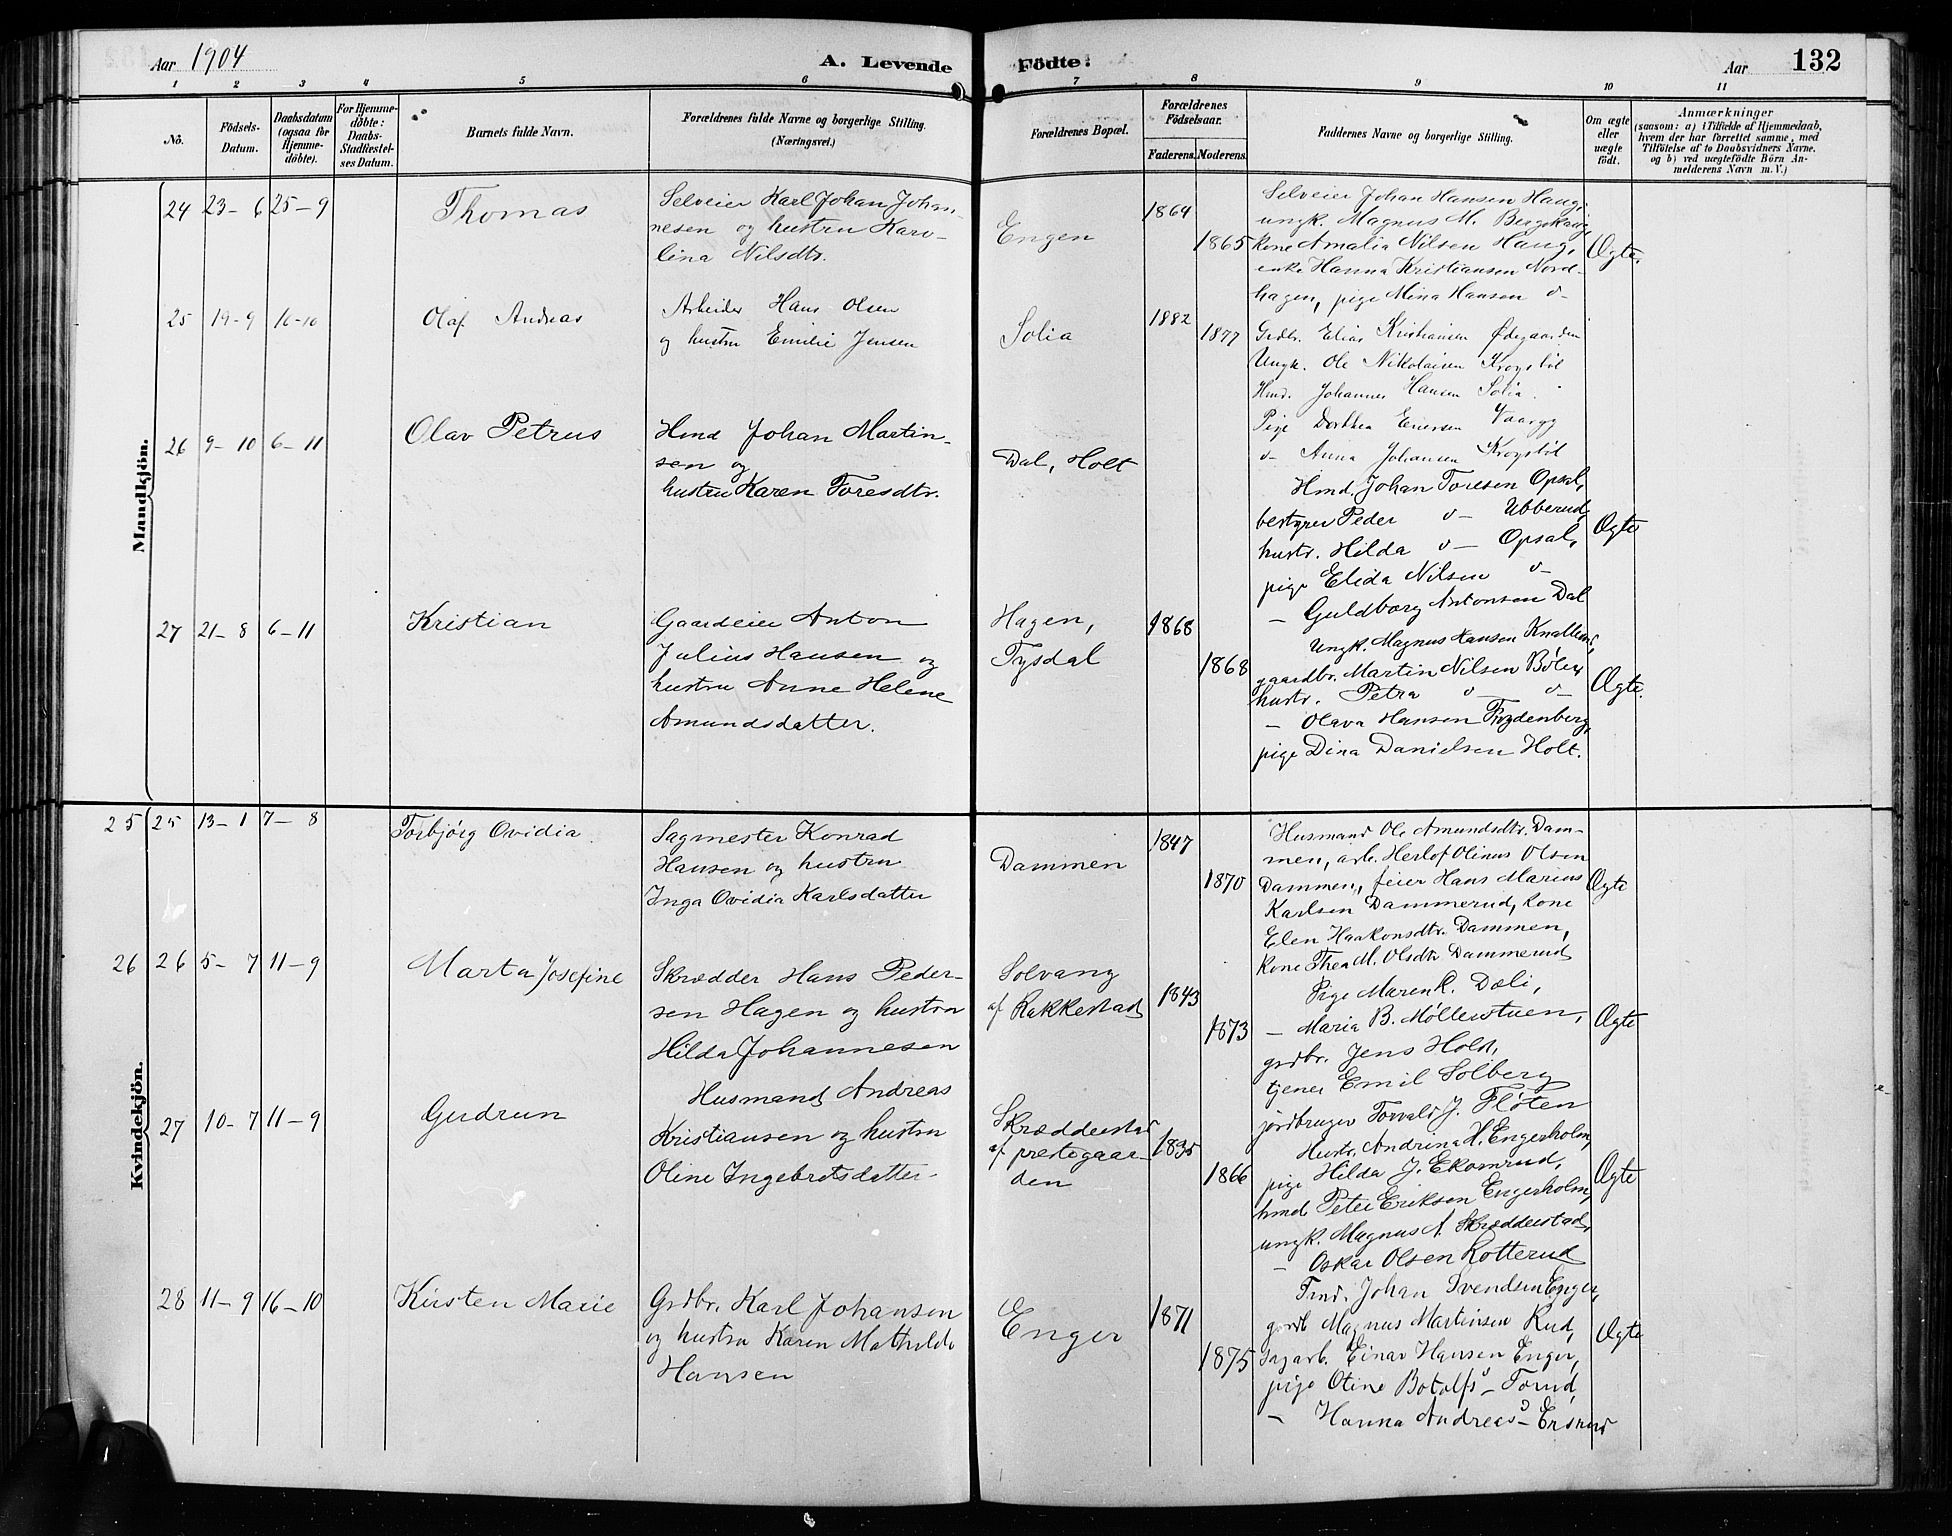 Aar 1904
A. Levende Födte:
Aar
132
1 2 3 4 5 6 7 8 9 10 11
No.
Födsels-
Datum.
Daabsdatum
(ogsaa for
Hjemme-
döbte).
For Hjemme-
döbte:
Daabs-
Stadfæstel-
ses Datum.
Barnets fulde Navn.
Forældrenes fulde Navne og borgerlige Stilling.
(Næringsvei.)
Forældrenes Bopæl.
Forældrenes
Födselsaar.
Faderens. Moderens.
Faddernes Navne og borgerlige Stilling.
Om ægte
eller
uægte
födt.
Anmærkninger
(saasom: a) i Tilfælde af Hjemmedaab,
hvem der har forrettet samme, med
Tilföielse af to Daabsvidners Navne.
og b) ved uægtefödte Börn An-
melderens Navn m. V.)
Mandkjön.
24 23-6 25-9 Thomas
Selveier Karl Johan Johan-
nesen og hustru Karo-
lina Nilsdtr.
Engen
1864
1865
Selveier Johan Hansen Haug,
ungk. Magnus M. Bergskaug,
kone Amalia Nilsen Haug,
enke Hanna Kristiansen Nord-
hagen, pige Mina Hansen v-
Ægte.
25 19-9 16-10 Olaf Andreas
Arbeider Hans Olsen
og hustru Emilie Jensen
Solia
1882
1877
Grdbr. Elias Kristiansen Ødegaarden
Ungk. Ole Nikolaisen Krogstøl
Hmd. Johannes Hansen Solia.
Pige Dorthea Enersen
v- Anna Johansen Krogstøl
26 9-10 6-11 Olav Petrus
Hmd Johan Martin-
sen og
hustru Karen Toresdtr.
Dal, Holt
Hmd. Johan Toresen Opsal,
bestyrer Peder v- Ubberud,
hustr. Hilda v- Opsal,
pige Elida Nilsen v-
- Guldborg Antonsen Dal
Ægte
27 21-8 6-11 Kristian
Gaardeier Anton
Julius Hansen og
hustru Anne Helene
Amundsdatter.
Hagen,
Tysdal
1868
1868
Ungk. Magnus Hansen
gaardbr. Martin Nilsen Bøler
hustr. Petra v- v-
- Olava Hansen Frydenberg,
pige Dina Danielsen Holt.
Ægte.
Kvindekjön.
25 25 13-1 7-8 Torbjörg Ovidia
Sagmester Konrad
Hansen og hustru
Inga Ovidia Karlsdatter
Dammen
1847
1870
Husmand Ole Amundsdtr. Dam-
men, arb. Herlof Olinus Olsen
Dammen, feier Hans Marius
Karlsen Dammerud, kone
Elen Haakonsdtr. Dammen,
kone Thea M. Olsdtr. Dammerud
Ægte
26 26 5-7 11-9 Marta Josefine
Skrædder Hans Peder-
sen Hagen og hustru
Hilda Johannesen
Solvang
af Rakkestad
1843
1873
Pige Maren K. Dæli,
- Maria B. Møllerstuen,
grdbr. Jens Holt,
tjener Emil Solberg
jordbruger Torvald J. Fløten
Ægte
27 10-7 11-9 Gudrun
Husmand Andreas
Kristiansen og hustru
Oline Ingebretsdatter
Skrædderstad
af prestegaar-
den
1835
1866
Hustr. Andrina H. Engerholm,
pige Hilda J. Ekornrud,
hmd Peter Eriksen Engerholm,
ungk. Magnus A. Skrædderstad,
- Oskar Olsen Rotterud
Ægte
28 11-9 16-10 Kirsten Marie
Grdbr. Karl Johansen
og hustru Karen Mathilde
Hansen
Enger
1871
1875
Fmd. Johan Svendsen Enger,
gardb Magnus Martinsen Rud,
sagarb. Einar Hansen Enger,
pige Otine Botolfsd- Torud,
- Hanna Andreasd- Ersrud
Ægte